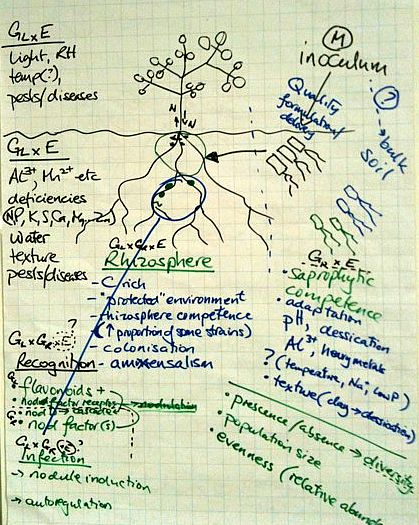 GL x E
Light, RH
temp(?),
pests/diseases
M
inoculum
Quality
formulation/
delivery
?
→ bulk
soil
N
N
GL x E
Al3+, Mn2+ etc
deficiencies
N, P, K, S, Ca, Mg, Zn
Water
texture
pests/diseases
GL x GR x E
Rhizosphere
- C rich
- "protected" environment
- rhizosphere competence
(↑ proportion of some strains)
- colonisation
- amensalism
GR x E
• Saprophytic
competence
• adaptation
pH, dessication
Al3+, Heavy metals
? (temperature, Na+, low P)
• texture (clay → dessication)
?
GL x GR x E
Recognition
• flavonoids +
• nod factor receptor → nodulation
• nod → cascades
• nod factor(s)
GL x GR (x E) ?
Infection
→ nodule induction
→ autoregulation
• prescence / absence → diversity
• population size
• evenness (relative